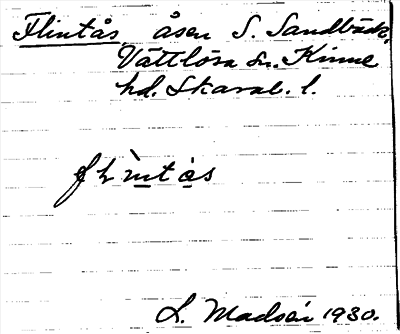 Flintås, åsen S. Sandbäck,
Vättlösa sn. Kinne
hd. Skarab. l.
flìntås
L. Madsén 1930.